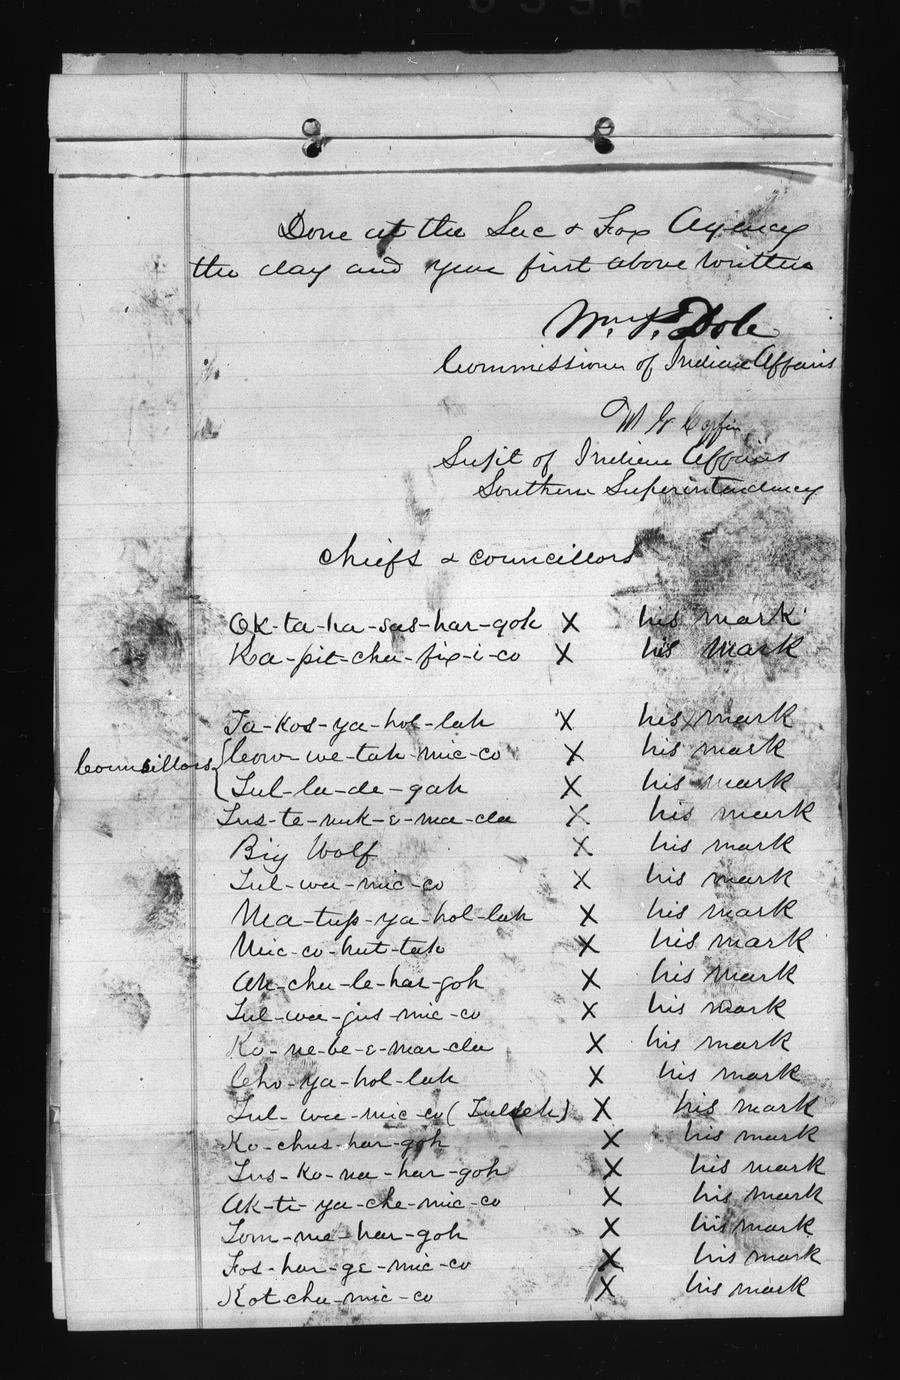 Done at the Sac & Fox Agency
the day and year first above written
Wm. P. Dole
Commissioner of Indian Affairs
W G Coffin
Supt of Indian Affairs
Southern Superintendency
chiefs & councillors
Ok-ta-ha-sas-har-goh X his mark
Ka-pit-cha-fix-i-co X his mark
Ta-Kos-ya-hol-lah X his mark
Councillors { Cow-we-tah-mic-co X his mark
Tul-la-de-gah X his mark
Tus-te-nuk-e-ma-da X his mark
Big Wolf X his mark
Tul-wa-mic-co X his mark
Na-tup-ya-hol-lah X his mark
Mic-co-hut-tah X his mark
Ak-chu-le-har-goh X his mark
Tul-wa-jus-mic-co X his mark
Ko-ne-be-e-mar-da X his mark
Cho-ya-hol-lah X his mark
Tul-wa-mic-co ( ) X his mark
Ko-chus-har-goh X his mark
Tus-ko-na-har-goh X his mark
Ak-ti-ya-che-mic-co X his mark
Tom-me-har-goh X his mark
Fos-har-ge-mic-co X his mark
Kot cha-mic-co X his mark